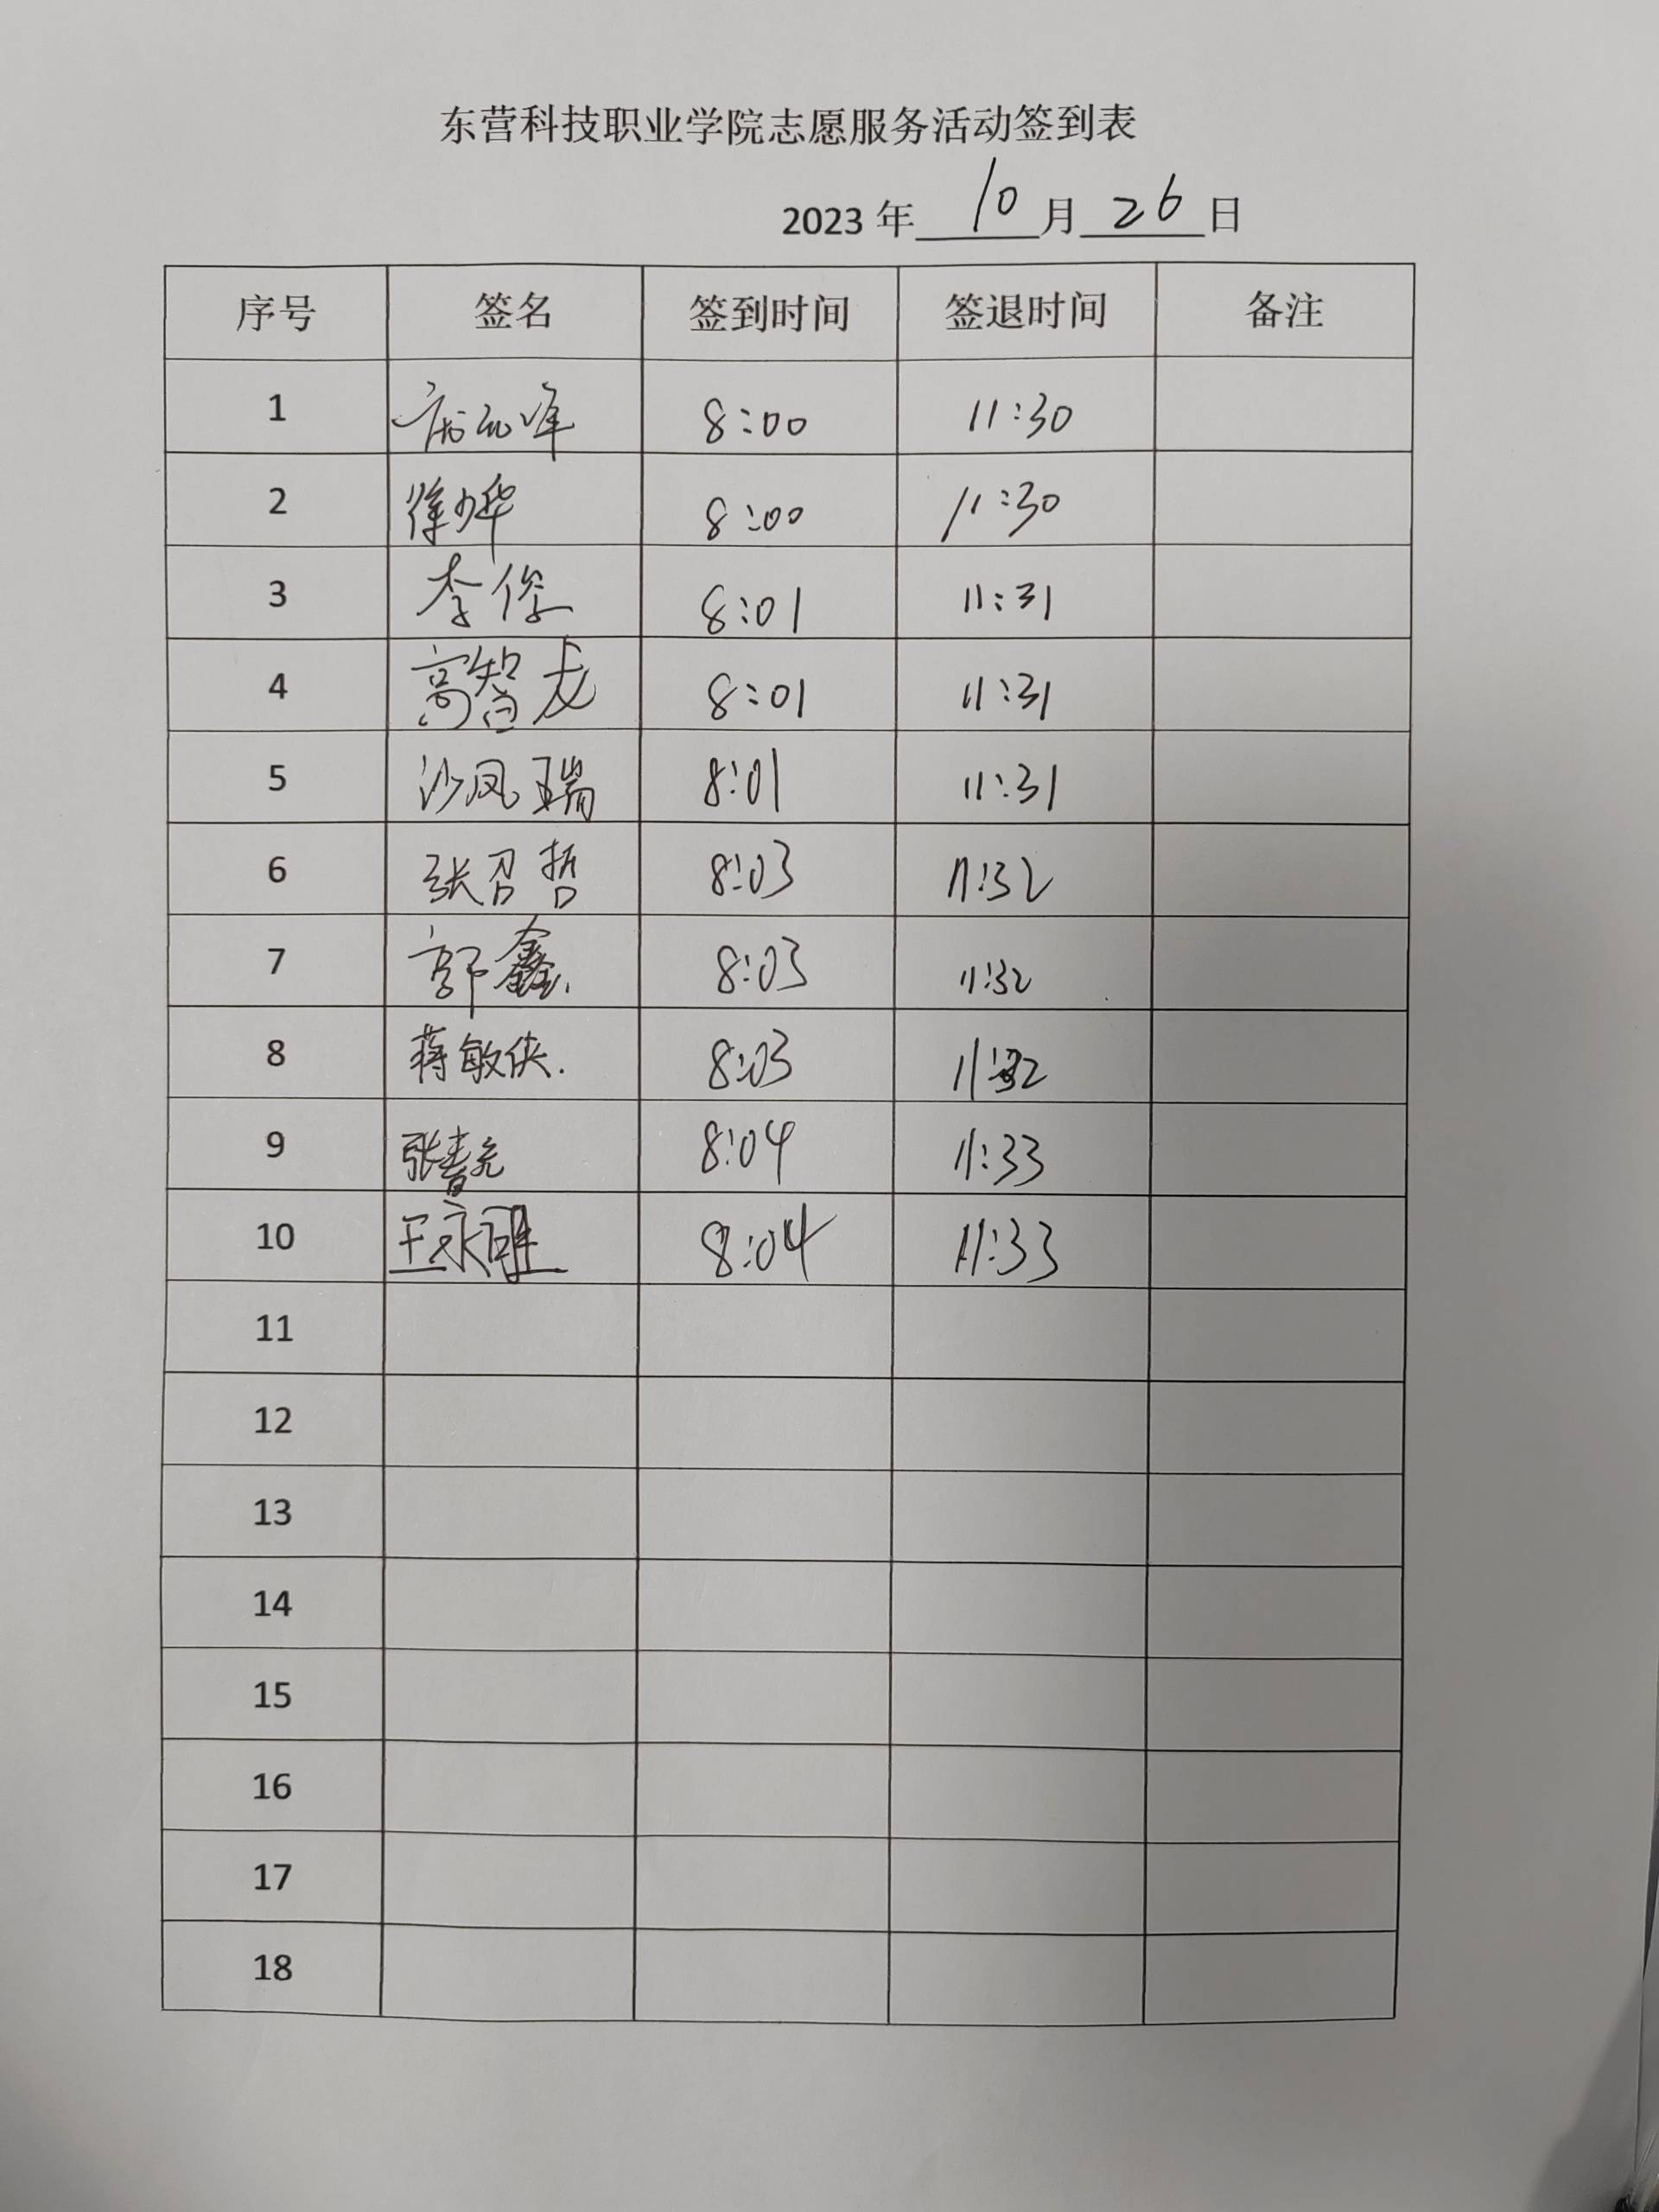 东营科技职业学院志愿服务活动签到表
2023 年 10 月 26 日
序号 签名 签到时间 签退时间 备注
1 8:00 11:30
2 徐少华 8:00 11:30
3 李俊 8:01 11:31
4 高智龙 8:01 11:31
5 沙凤瑞 8:01 11:31
6 张召哲 8:03 11:32
7 郭鑫 8:03 11:32
8 蒋敏侠. 8:03 11:32
9 8:04 11:33
10 8:04 11:33
11
12
13
14
15
16
17
18